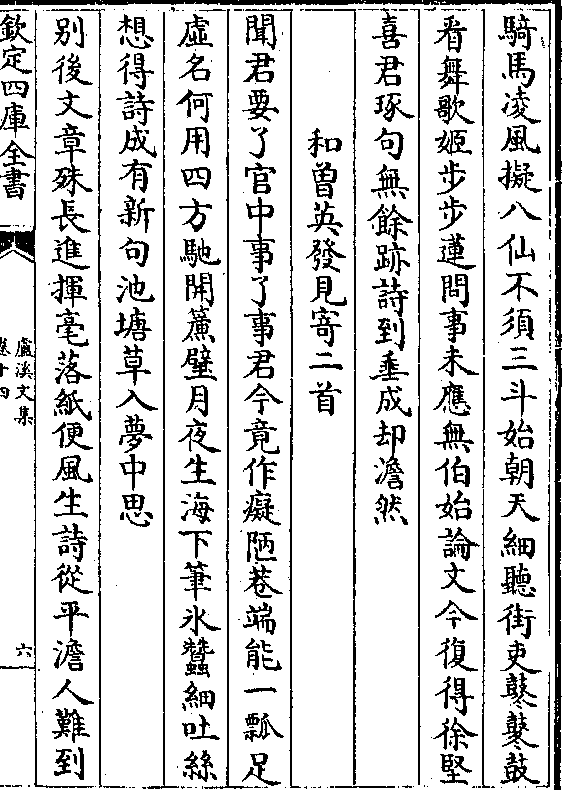 騎馬凌風擬八仙不須三斗始朝天細聽街吏鼕鼕鼓
看舞歌姬步步蓮問事未應無伯始論文今復得徐堅
喜君琢句無餘跡詩到垂成却澹然
和曽英發見寄二首
聞君要了官中事了事君今竟作癡陋巷端能一瓢足
虚名何用四方馳開簾壁月夜生海下筆氷蠶細吐絲
想得詩成有新句池塘草入夢中思
别後文章殊長進揮毫落紙便風生詩從平澹人難到
欽定四庫全書
盧溪文集
卷十四
六